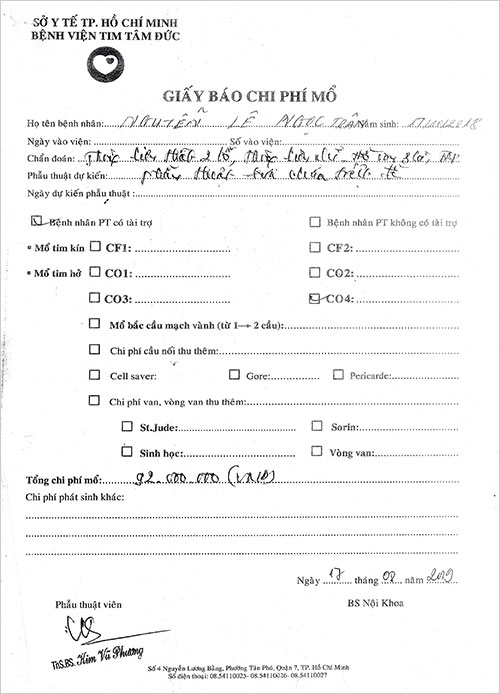 SỞ Y TẾ TP. HỒ CHÍ MINH
BỆNH VIỆN TIM TÂM ĐỨC
GIẤY BÁO CHI PHÍ MỔ
Họ tên bệnh nhân: NGUYỄN LÊ NGỌC TRÂN Năm sinh: 17/10/2018
Ngày vào viện: Số vào viện:
Chẩn đoán: Thông liên thất 2 lỗ, Thông liên nhĩ
Phẫu thuật dự kiến: phẫu thuật sửa chữa
Ngày dự kiến phẫu thuật:
Bệnh nhân PT có tài trợ Bệnh nhân PT không có tài trợ
* Mổ tim kín CF1: CF2:
* Mổ tim hở CO1: CO2:
CO3: CO4:
Mổ bắc cầu mạch vành (từ 1→ 2 cầu):
Chi phí cầu nối thu thêm:
Cell saver: Gore: Pericarde:
Chi phí van, vòng van thu thêm:
St.Jude: Sorin:
Sinh học: Vòng van:
Tổng chi phí mổ: 92.000.000 (VNĐ)
Chi phí phát sinh khác:
Ngày 17 tháng 08 năm 2019
Phẫu thuật viên BS Nội Khoa
ThS.BS. Kim Vũ Phương
Số 4 Nguyễn Lương Bằng, Phường Tân Phú, Quận 7, TP. Hồ Chí Minh
Số điện thoại: 08.54110025- 08.54110026- 08.54110027